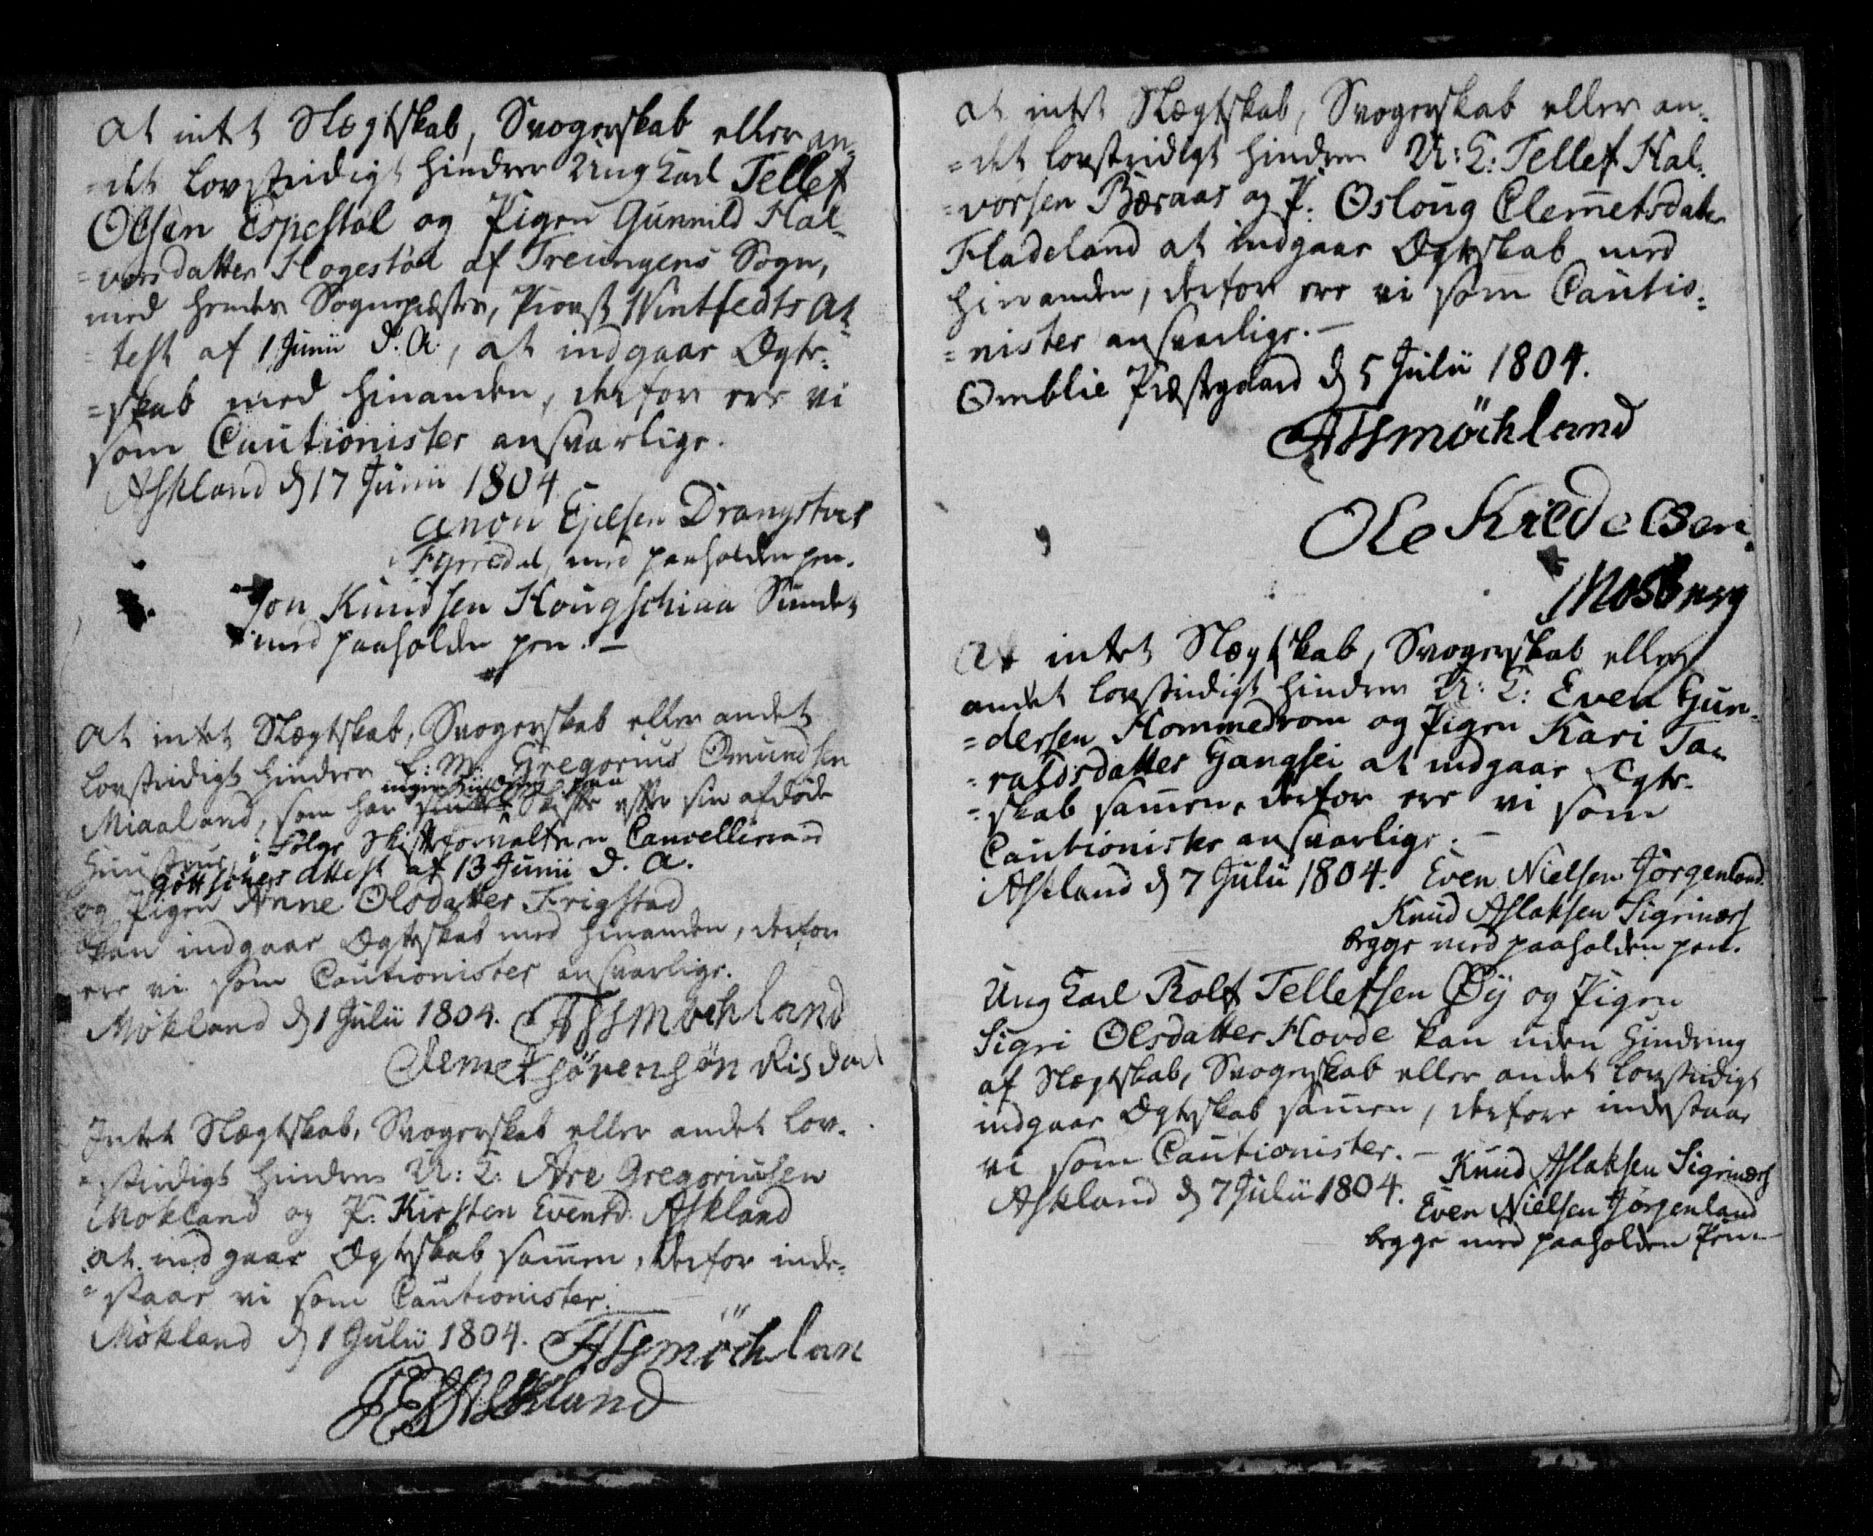 At intet Slægtskab, Svogerskab eller an-
=det lovstridigt hindrer Ung Karl Tellef
Olsen Espestøl og Pigen Gunnild Hal-
=vorsdatter Hogestøl af Treungens Sogn,
med hendes Sognepræstes, Provst Wintfedts At-
=test af 1 Junii d: A:, at indgaae Ægte-
=skab med hinanden, derfor ere vi
som Cautionister ansvarlige.
Askland d 17 Junii 1804
Anon Ejelsen Drangstvet
Fyrredal, med paaholden pen.
Jon Knudsen Hougschiaa Sundet
med paaholden pen. —
At intet Slægtskab, Svogerskab eller andet
lovstridigt hindrer E: M: Gregorius Omundsen
ingen hindring paa
Miaaland, som har Skifte efter sin afdøde
Huustrue, i Følge Skifteforvalteren Cancelliraad
Göttschers Attest af 13 Junii d. A.
og Pigen Anne Olsdatter Frigstad
kan indgaae Ægteskab med hinanden, derfor
ere vi som Cautionister ansvarlige.
Mökland d 1 Julii 1804. AGSmöchland
Clemet Sørensøn Risdal
Intet Slægtskab, Svogerskab eller andet lov-
=stridigt hindrer U: K: Are Gregoriusen
Mokland og P: Kirsten Evensd. Askland
at indgaae Ægteskab samen, derfor inde-
=staae vi som Cautionister.
Mökland d 1 Julii 1804. AGSmöchlan
Askland
At intet Slægtskab, Svogerskab eller an-
=det lovstridigt hindrer U: K: Tellef Hal-
=vorsen Bæraas og P: Osloug Clemetsdatter
Fladeland at indgaae Ægteskab med
hinanden, derfor ere vi som Cautio-
=nister ansvarlige. —
Omblie Præstgaard d 5 Julii 1804.
AGSmöchland
Ole Kiedelsen
Mosberg
At intet Slægtskab, Svogerskab eller
andet lovstridigt hindrer U: K: Even Gun-
=dersen Hommedrom og Pigen Kari Ta-
=raldsdatter Gangsei at indgaae Ægte-
=skab samen, derfor ere vi som
Cautionister ansvarlige. —
Askland d 7 Julii 1804. Even Nielsen Jørgenland
Knud Aslaksen Sigrinæs
begge med paaholden pen.
Ung Karl Rolf Tellefsen Øÿ og Pigen
Sigri Olsdatter Hovde kan uden Hindring
af Slægtskab, Svogerskab eller andet lovstridigt
indgaae Ægteskab samen, derfore indestaae
vi som Cautionister. —
Askland d 7 Julii 1804. Knud Aslaksen Sigrinæs
Even Nielsen Jørgenland
begge med paaholden Pen —